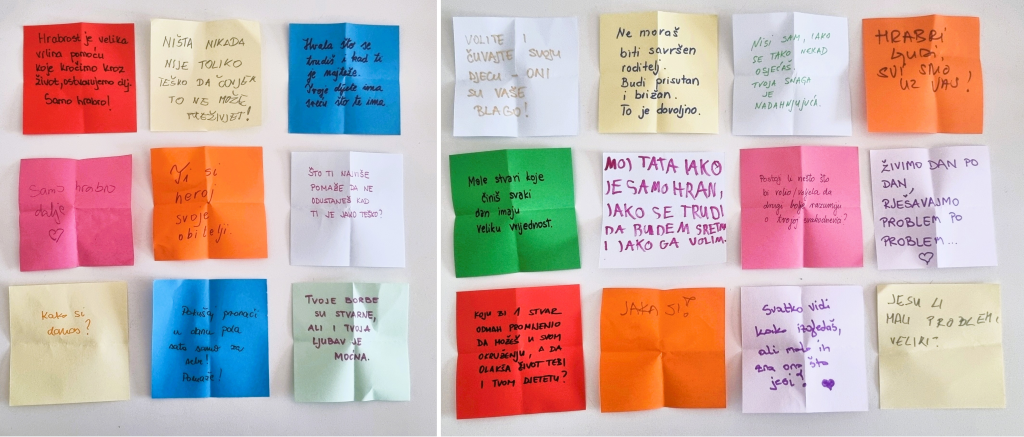 Hrabrost je velika
vrlina pomoću
koje kročimo kroz
život, ostvarujemo cilj.
Samo hrabro!
NIŠTA NIKADA
NIJE TOLIKO
TEŠKO DA ČOVJEK
TO NE MOŽE
PREŽIVJET!
Hvala što se
trudiš i kad ti
je najteže.
Tvoje dijete ima
sreću što te ima.
Samo hrabro
dalje
♡
Ti si
heroj
svoje
obitelji.
ŠTO TI NAJVIŠE
POMAŽE DA NE
ODUSTANEŠ KAD
TI JE JAKO TEŠKO?
Kako si
danas?
Pokušaj pronaći
u danu pola
sata samo za
sebe!
Pomaže!
TVOJE BORBE
SU STVARNE,
ALI I TVOJA
LJUBAV JE
MOĆNA.
VOLITE I
ČUVAJTE SVOJU
DJECU - ONI
SU VAŠE
BLAGO!
Ne moraš
biti savršen
roditelj.
Budi prisutan
i brižan.
To je dovoljno.
NISI SAM, IAKO
SE TAKO NEKAD
OSJEĆAŠ.
TVOJA SNAGA
JE
NADAHNJUJUĆA.
HRABRI
LJUDI,
SVI SMO
UZ VAS!
Male stvari koje
činiš svaki
dan imaju
veliku vrijednost.
MOJ TATA IAKO
JE SAMOHRAN,
JAKO SE TRUDI
DA BUDEM SRETN
I JAKO GA VOLIM.
Postoji li nešto što
bi volio/voljela da
drugi bolje razumiju
o tvojoj svakodnevici?
ŽIVIMO DAN PO
DAN,
RJEŠAVAJMO
PROBLEM PO
PROBLEM...
♡
KOJU BI 1 STVAR
ODMAH PROMIJENIO
DA MOŽEŠ U SVOM
OKRUŽENJU, A DA
OLAKŠA ŽIVOT TEBI
I TVOM DJETETU?
JAKA SI!
Svatko vidi
kako izgledaš,
ali malo ih
zna ono što
jesi! ♥
JESU LI
MALI PROBLEMI
VELIKI?